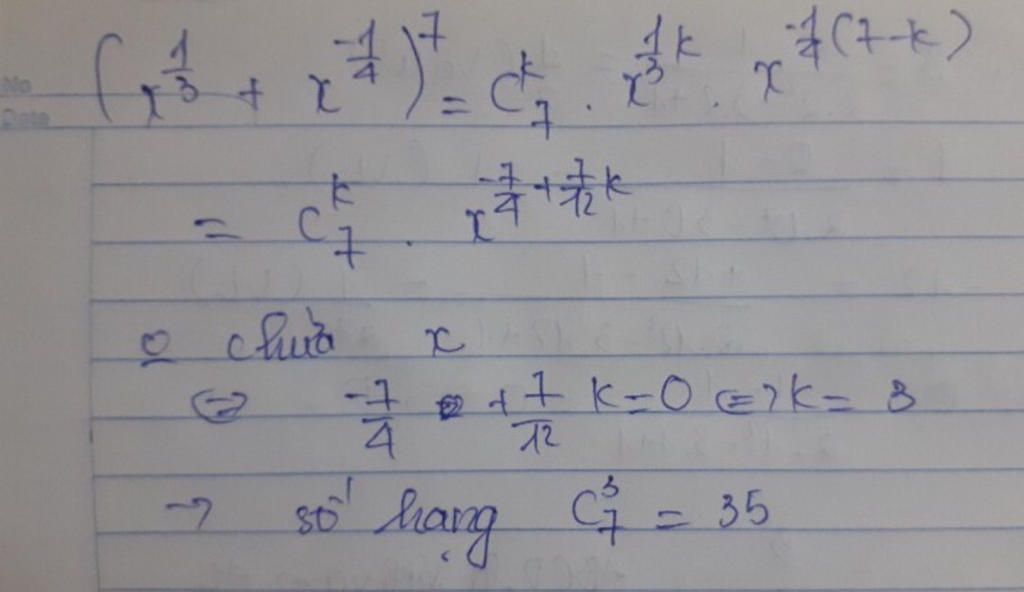 No
Date
(x^{\frac{1}{3}} + x^{\frac{-1}{4}})^7 = C_7^k . x^{\frac{1}{3}k} . x^{\frac{-1}{4}(7-k)}
= C_7^k . x^{\frac{-7}{4}+\frac{7}{12}k}
o chứa x
⇔ \frac{-7}{4} + \frac{7}{12} k = 0 ⇔ k = 3
→ số hạng C_7^3 = 35